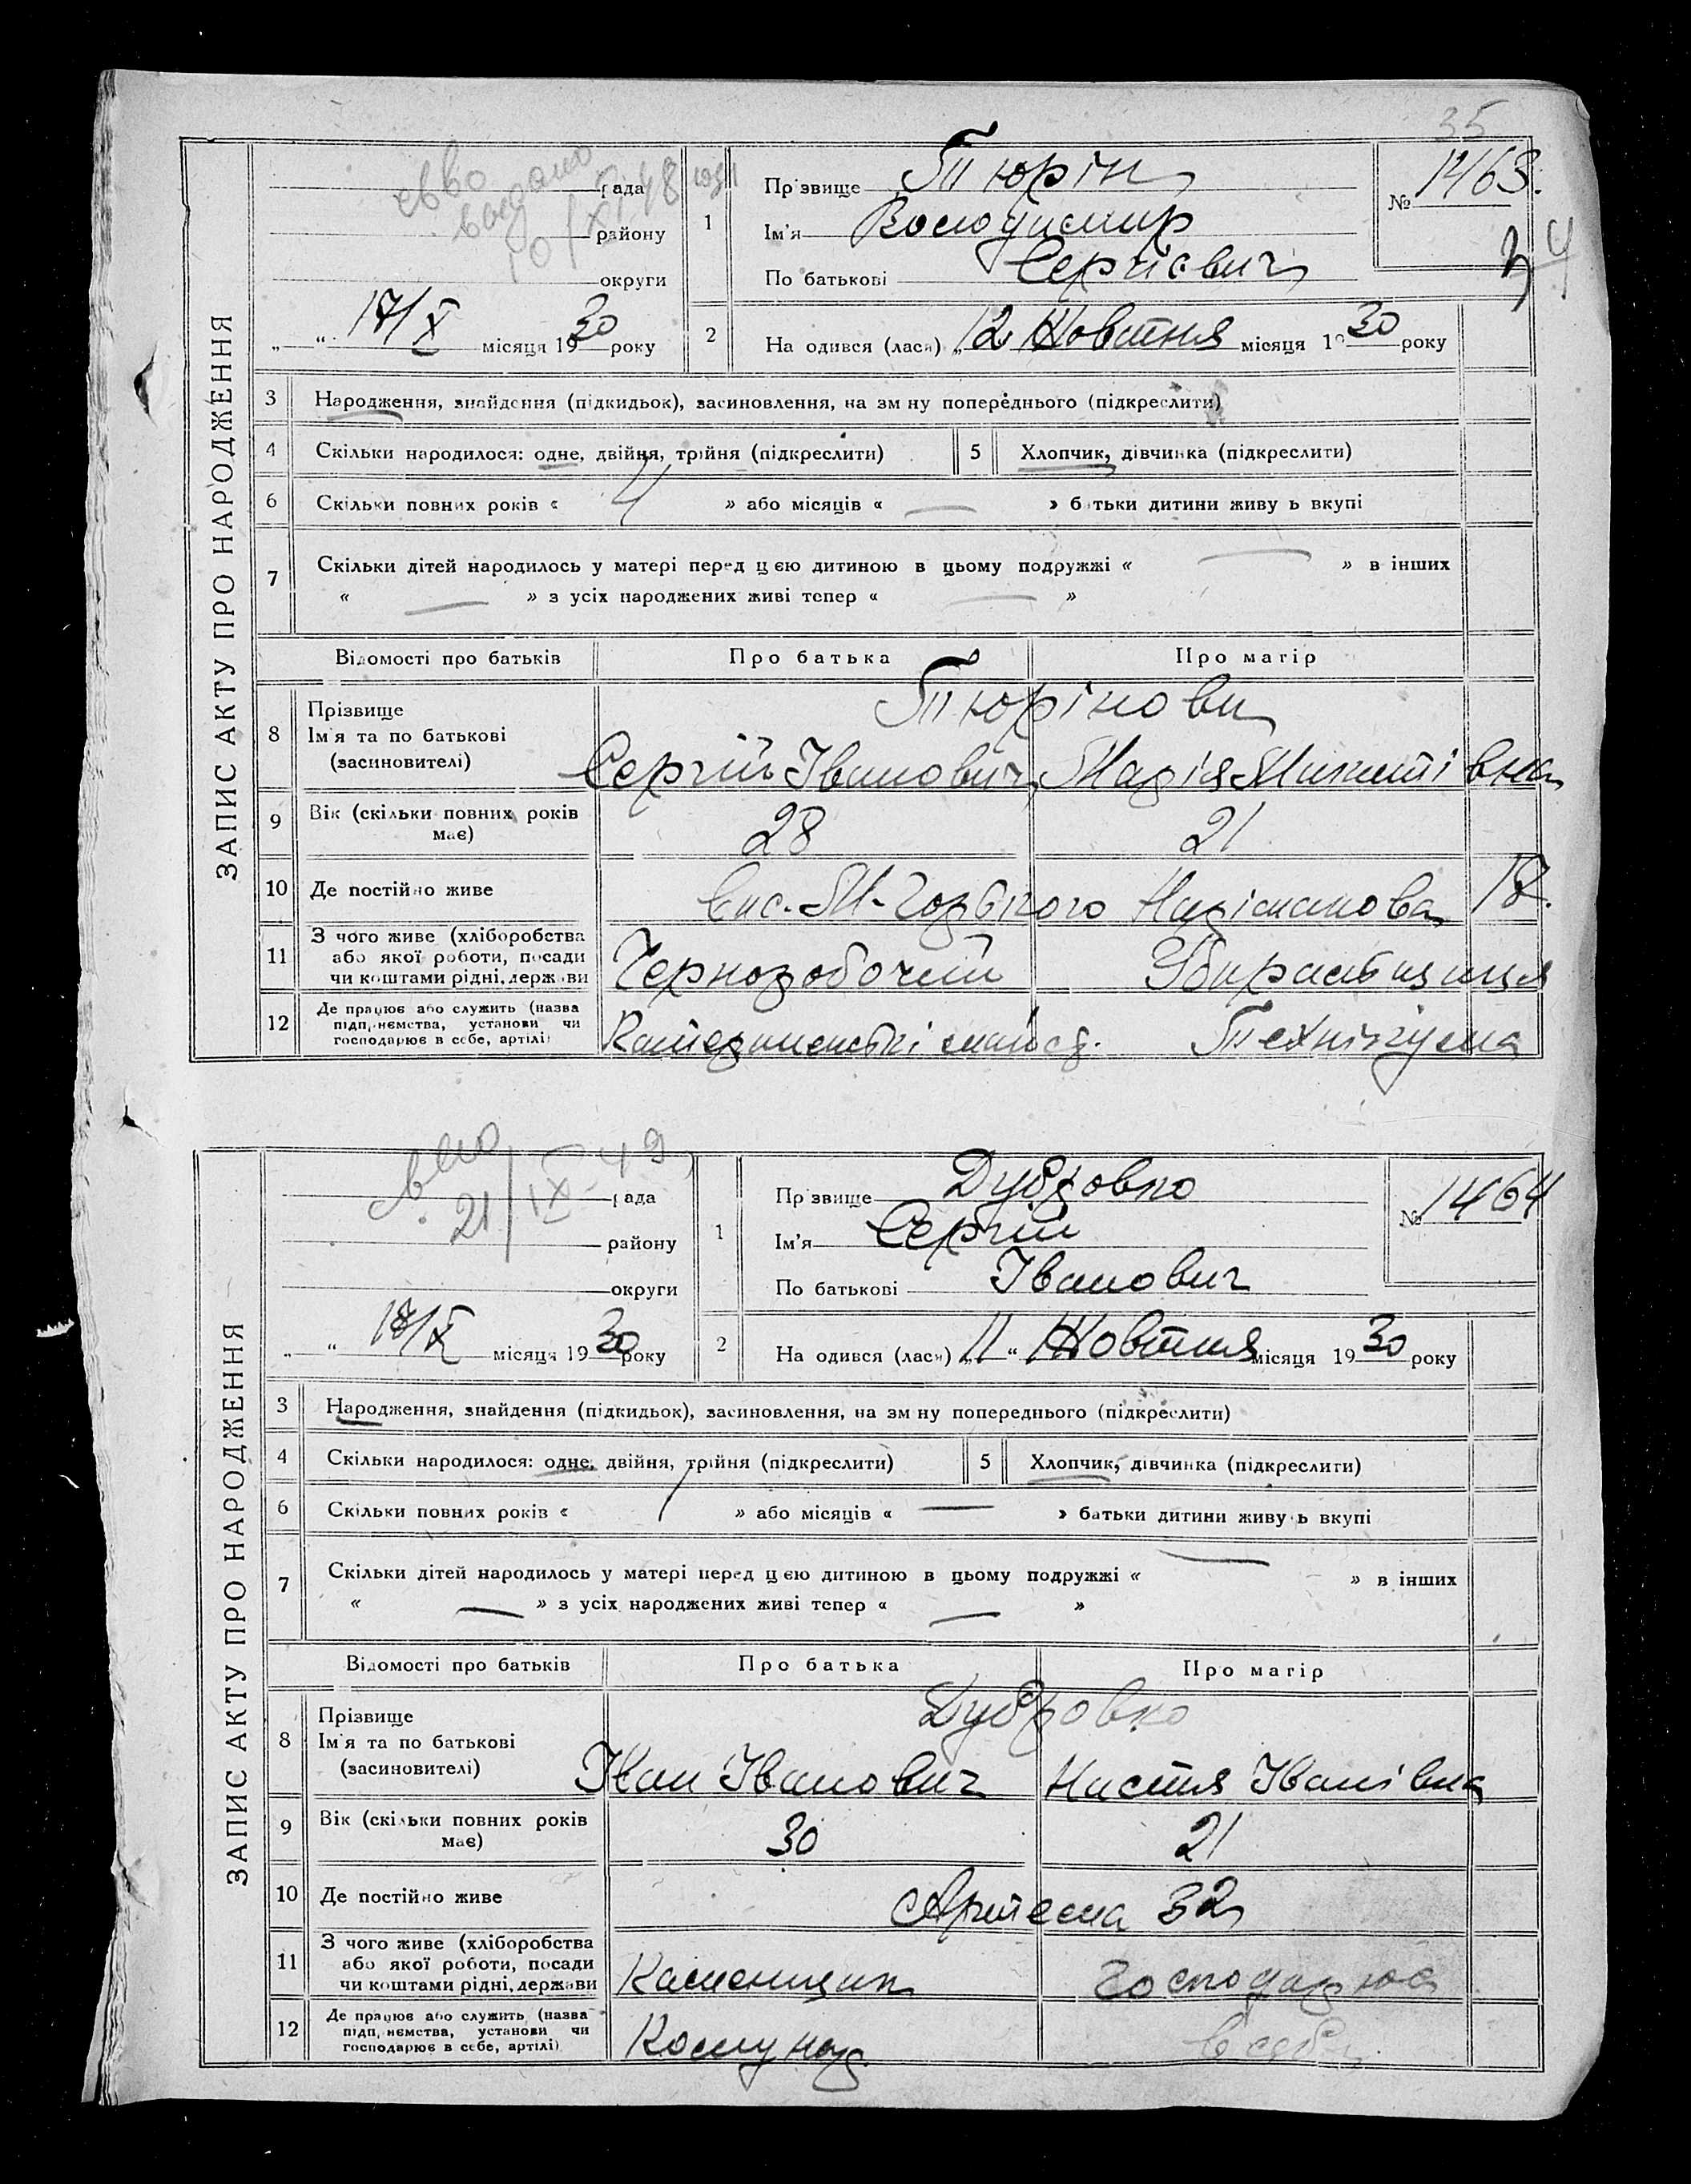 35
ЗАПИС АКТУ ПРО НАРОДЖЕННЯ
рада
району
округи
„ “ 17/X місяця 1930 року
1
Прізвище Тюрін
Ім'я Володимир
По батькові Сергієвич
№ 1463.
2
Народився (лася) „12 Жовтня місяця 1930 року
3 Народження, знайдення (підкидьок), засиновлення, на зміну попереднього (підкреслити)
4 Скільки народилося: одне, двійня, трійня (підкреслити)
5 Хлопчик, дівчинка (підкреслити)
6 Скільки повних років « 4 » або місяців « — » батьки дитини живуть вкупі
7 Скільки дітей народилось у матері перед цією дитиною в цьому подружжі « — » в інших
« — » з усіх народжених живі тепер « — »
Відомості про батьків Про батька Про матір
8 Прізвище
Ім'я та по батькові
(засиновителі)
Тюрінови
Сергій Іванович Надія Микитівна
9 Вік (скільки повних років має) 28 21
10 Де постійно живе Наріманова 17.
11 З чого живе (хліборобства
або якої роботи, посади
чи коштами рідні, держави
Чернозобочий
12 Де працює або служить (назва
підприємства, установи чи
господарює в себе, артілі)
Технікума
ЗАПИС АКТУ ПРО НАРОДЖЕННЯ
21/IX-49
рада
району
округи
„ “ 18/X місяця 1930 року
1
Прізвище Дубровко
Ім'я Сергій
По батькові Іванович
№ 1464
2
Народився (лася) „11“ Жовтня місяця 1930 року
3 Народження, знайдення (підкидьок), засиновлення, на зміну попереднього (підкреслити)
4 Скільки народилося: одне, двійня, трійня (підкреслити)
5 Хлопчик, дівчинка (підкреслити)
6 Скільки повних років « 1 » або місяців « — » батьки дитини живуть вкупі
7 Скільки дітей народилось у матері перед цією дитиною в цьому подружжі « — » в інших
« — » з усіх народжених живі тепер « — »
Відомості про батьків Про батька Про матір
8 Прізвище
Ім'я та по батькові
(засиновителі)
Дубровко
Іван Іванович Настя Іванівна
9 Вік (скільки повних років має) 30 21
10 Де постійно живе Артема 32
11 З чого живе (хліборобства
або якої роботи, посади
чи коштами рідні, держави
Каменщик Господарює
12 Де працює або служить (назва
підприємства, установи чи
господарює в себе, артілі)
Комунгз. в себе